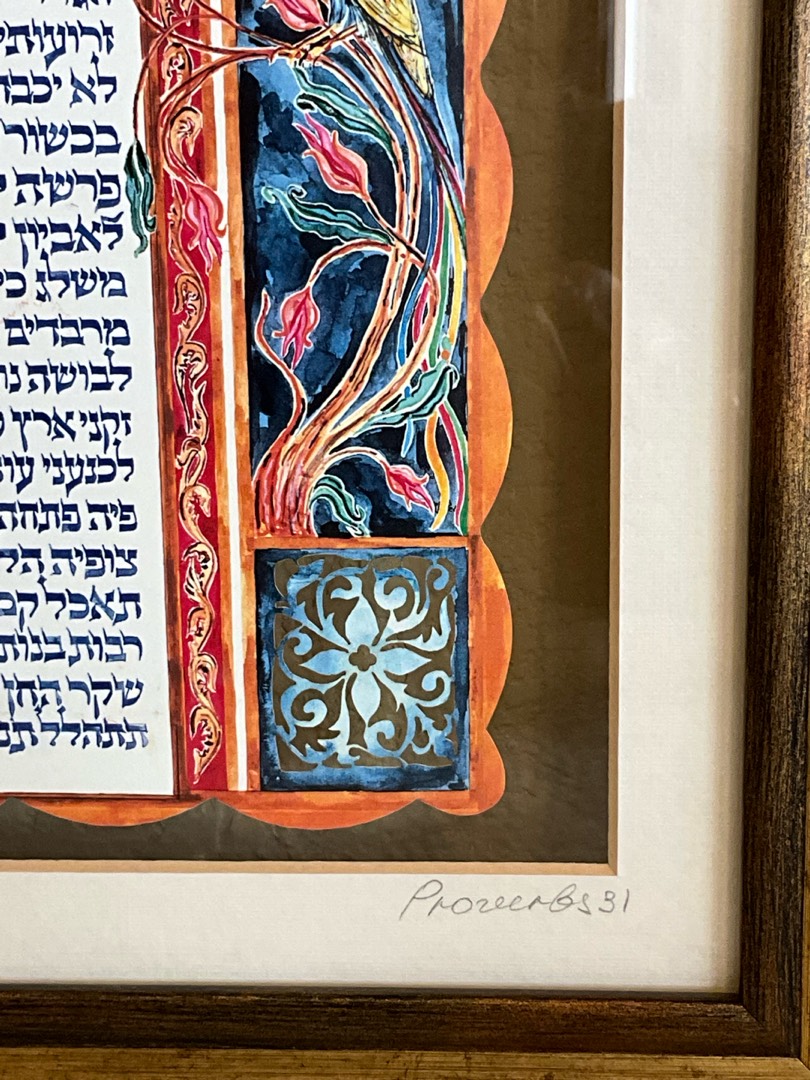 זרועותי
לא יכבה
בכשור
פרשה
לאביון
משלג כי
מרבדים
לבושה
זקני ארץ
לכנעני עוז
פיה פתחה
צופיה הל
תאכל
רבות בנות
שקר החן
תתהלל תנ
Proverbs 31